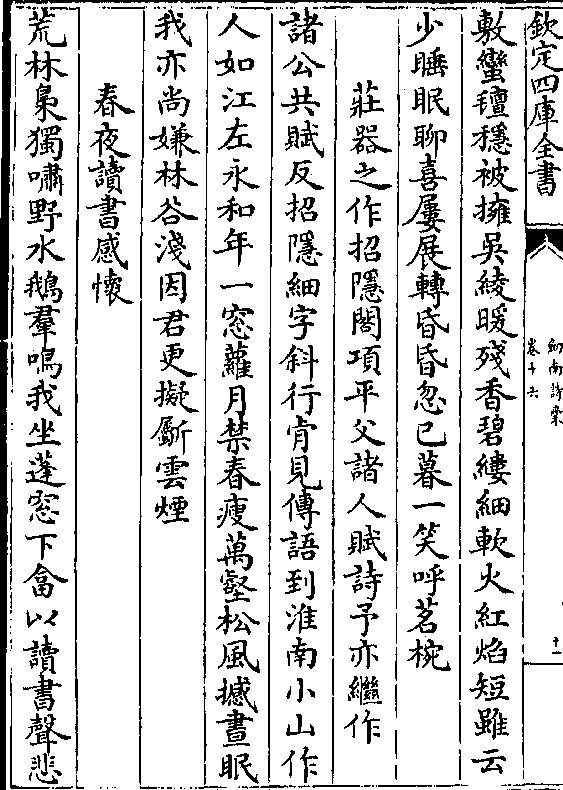 欽定四庫全書
劍南詩稾
卷十六
十一
敷蠻氊穩被擁吳綾暖殘香碧縷細軟火紅焰短雖云
少睡眠聊喜屢展轉昏昏忽已暮一笑呼茗椀
莊器之作招隱閣項平父諸人賦詩予亦繼作
諸公共賦反招隱細字斜行肯見傳語到淮南小山作
人如江左永和年一窓蘿月禁春瘦萬壑松風撼晝眠
我亦尚嫌林谷淺因君更擬斸雲煙
春夜讀書感懷
荒林梟獨嘯野水鵝羣鳴我坐蓬窓下畣以讀書聲悲